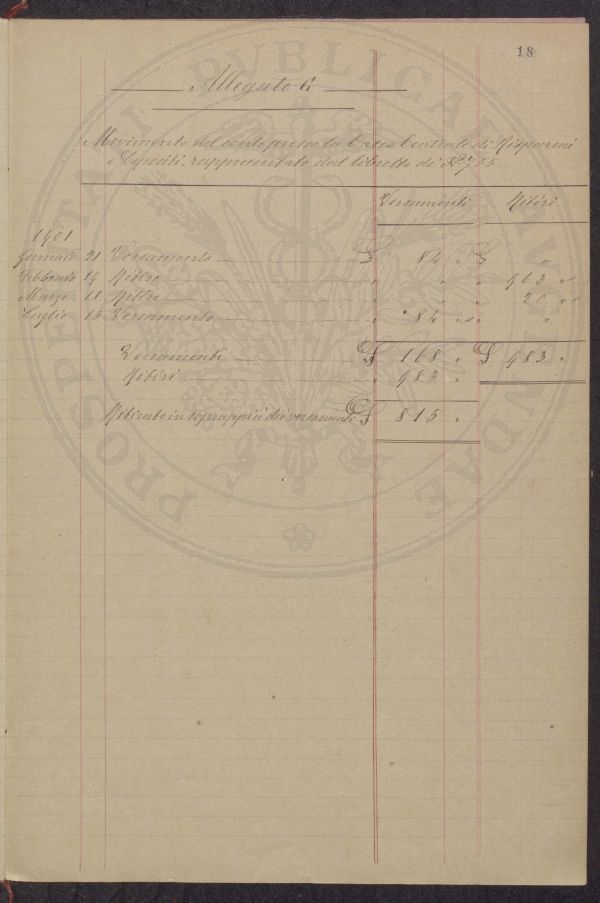 18
Allegato G
Movimento del conto presso la Cassa Centrale di Risparmi
e Depositi, rappresentato dal libretto di No 755
Versamenti Ritiri
1901
Gennaio 21 Versamento £ 84 "
Febbraio 19 Ritiro " " " 963 "
Marzo 11 Ritiro " " " 20 "
Luglio 15 Versamento " 84 " " "
Versamenti £ 168 " £ 983 "
Ritiri " 983 "
Ritirato in soprappiù dei versamenti £ 815 "
PROSPERITATI PUBLICAE AUGENDAE